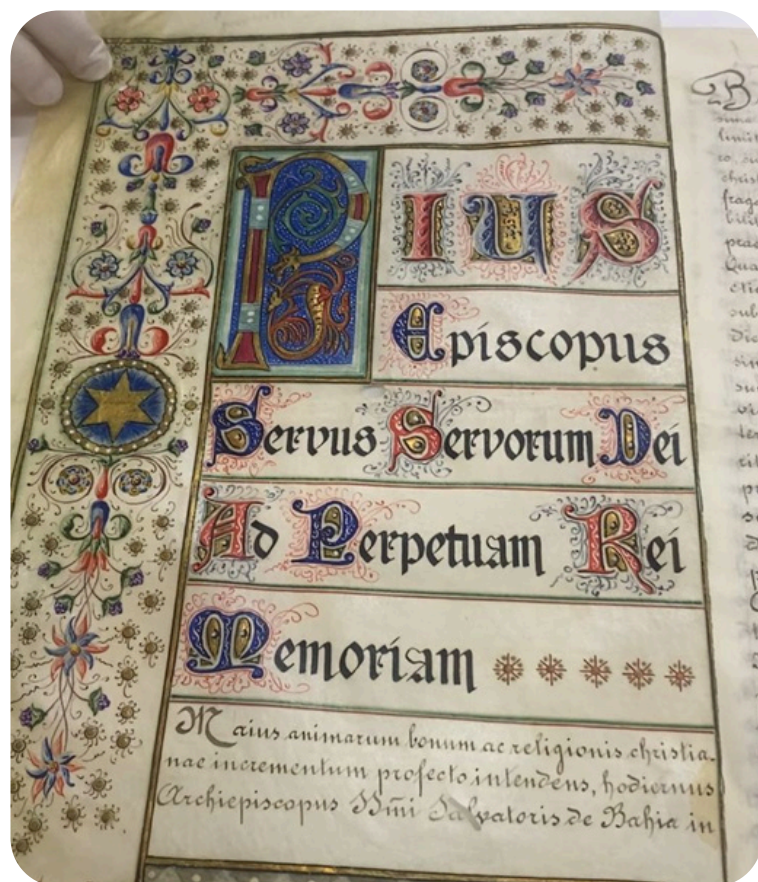 PIUS
Episcopus
Servus Servorum Dei
Ad Perpetuam Rei
Memoriam
Maius animarum bonum ac religionis christia-
nae incrementum profecto intendens, hodiernus
Archiepiscopus SSm̃i Salvatoris de Bahia in